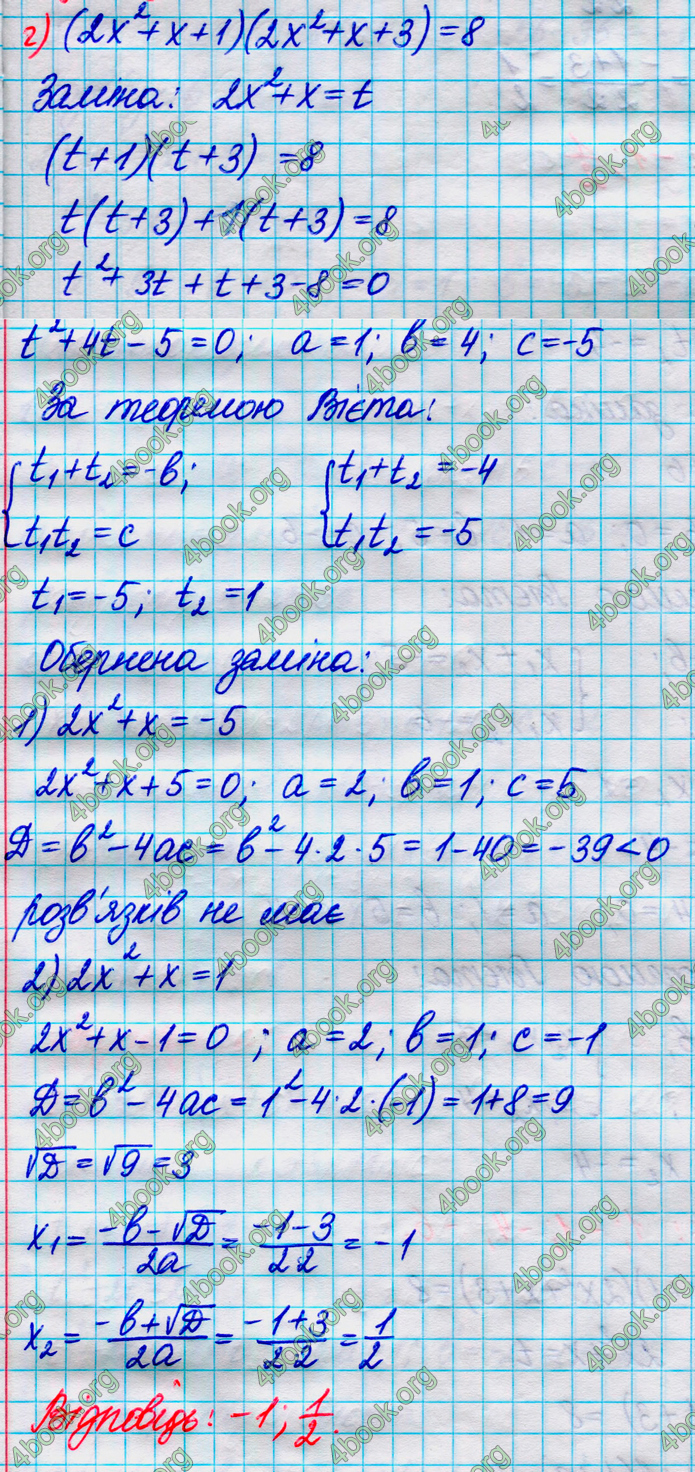 г) (2x²+x+1)(2x²+x+3)=8
Заміна: 2x²+x=t
(t+1)(t+3) =8
t(t+3)+1(t+3)=8
t²+3t+t+3-8=0
t²+4t-5=0; a=1; в=4; c=-5
За теоремою Вієта:
{t₁+t₂=-в; {t₁+t₂=-4
{t₁t₂=c {t₁t₂=-5
t₁=-5; t₂=1
Обернена заміна:
1) 2x²+x=-5
2x²+x+5=0; a=2; в=1; c=5
D=в²-4ac=в²-4·2·5=1-40=-39<0
розв'язків не має
2) 2x²+x=1
2x²+x-1=0 ; a=2; в=1; c=-1
D=в²-4ac=1²-4·2·(-1)=1+8=9
√D=√9=3
x₁=(-в-√D)/(2a)=(-1-3)/(2·2)=-1
x₂=(-в+√D)/(2a)=(-1+3)/(2·2)=1/2
Відповідь: -1; 1/2.
4book.org